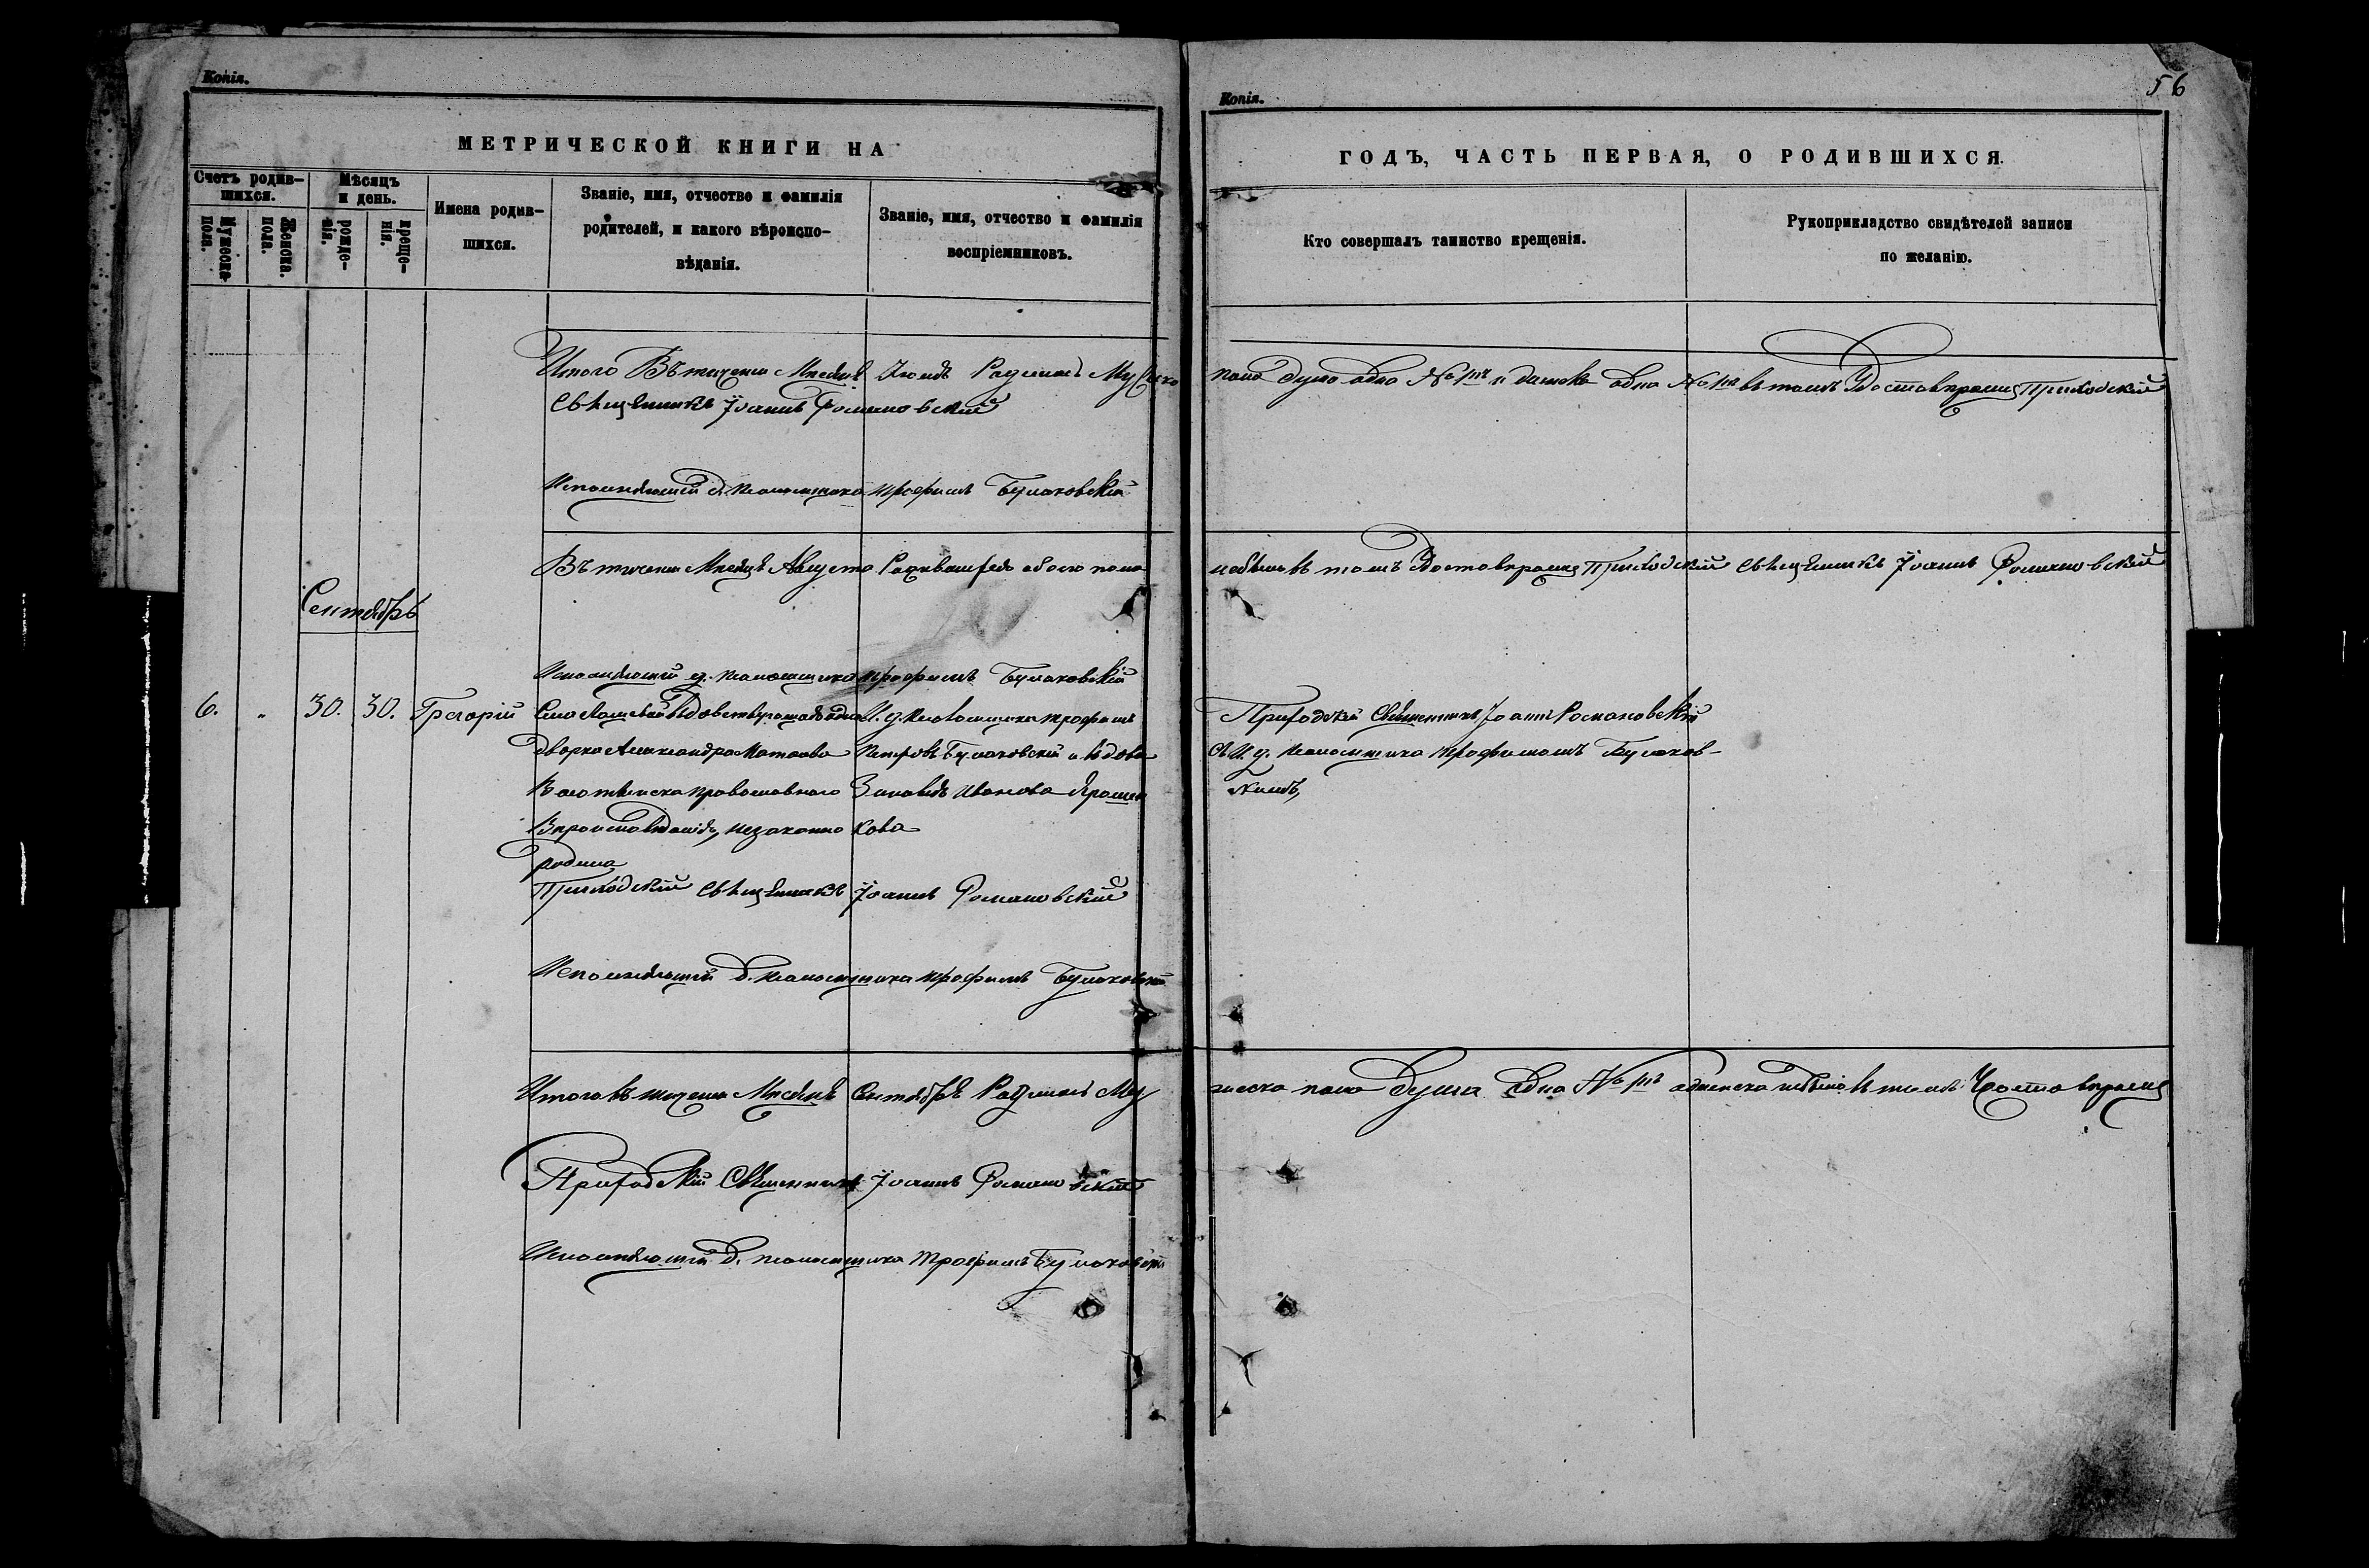 Копія.
МЕТРИЧЕСКОЙ КНИГИ НА
Счетъ родив-
шихся.
Мужеска
пола.
Женска.
пола.
Мѣсяцъ
и день.
рожде-
нія.
креще-
нія.
Имена родив-
шихся.
Званіе, имя, отчество и фамилія
родителей, и какого вѣроиспо-
вѣданія.
Званіе, имя, отчество и фамилія
воспріемниковъ.
Итого Въ течени Месяцѣ Іюлѣ Родилось Мужеко
Священникъ Іоаннъ Романовский
Исполняющій д. псаломщика Трофимъ Булаховскій
Въ течени Месяцѣ Августа Родившихся обоего пола
Сентябрь
Исполняющій д. псаломщика Трофимъ Булаховскій
6. " 30. 30. Григорій
дворка Александра
православнаго
Вероисповедания, незаконно
родила
И. д. псаломщика Трофимъ
Петровъ Булаховскій и вдова
Зиновія Иванова
кова
Приходский Священникъ Іоаннъ Романовский
Исполняющій д. псаломщика Трофимъ Булаховскій
Итого въ течени Месяцѣ Сентябрѣ Родилось Му
Приходскій Священникъ Іоаннъ Романовский
Исполняющій д. псаломщика Трофимъ Булаховскій
Копія.
56
ГОДЪ, ЧАСТЬ ПЕРВАЯ, О РОДИВШИХСЯ.
Кто совершалъ таинство крещенія.
Рукоприкладство свидѣтелей записи
по желанію.
пола душа одна № и женска одна № въ томъ Удостовераемъ Приходский
небыло въ томъ Удостовераемъ Приходский Священникъ Іоаннъ Романовский
Приходскій Священникъ Іоаннъ Романовскій
съ И. д. псаломщика Трофимомъ Булахов-
скимъ,
жеска пола душа одна № аженска небыло въ томъ Удостовераемъ